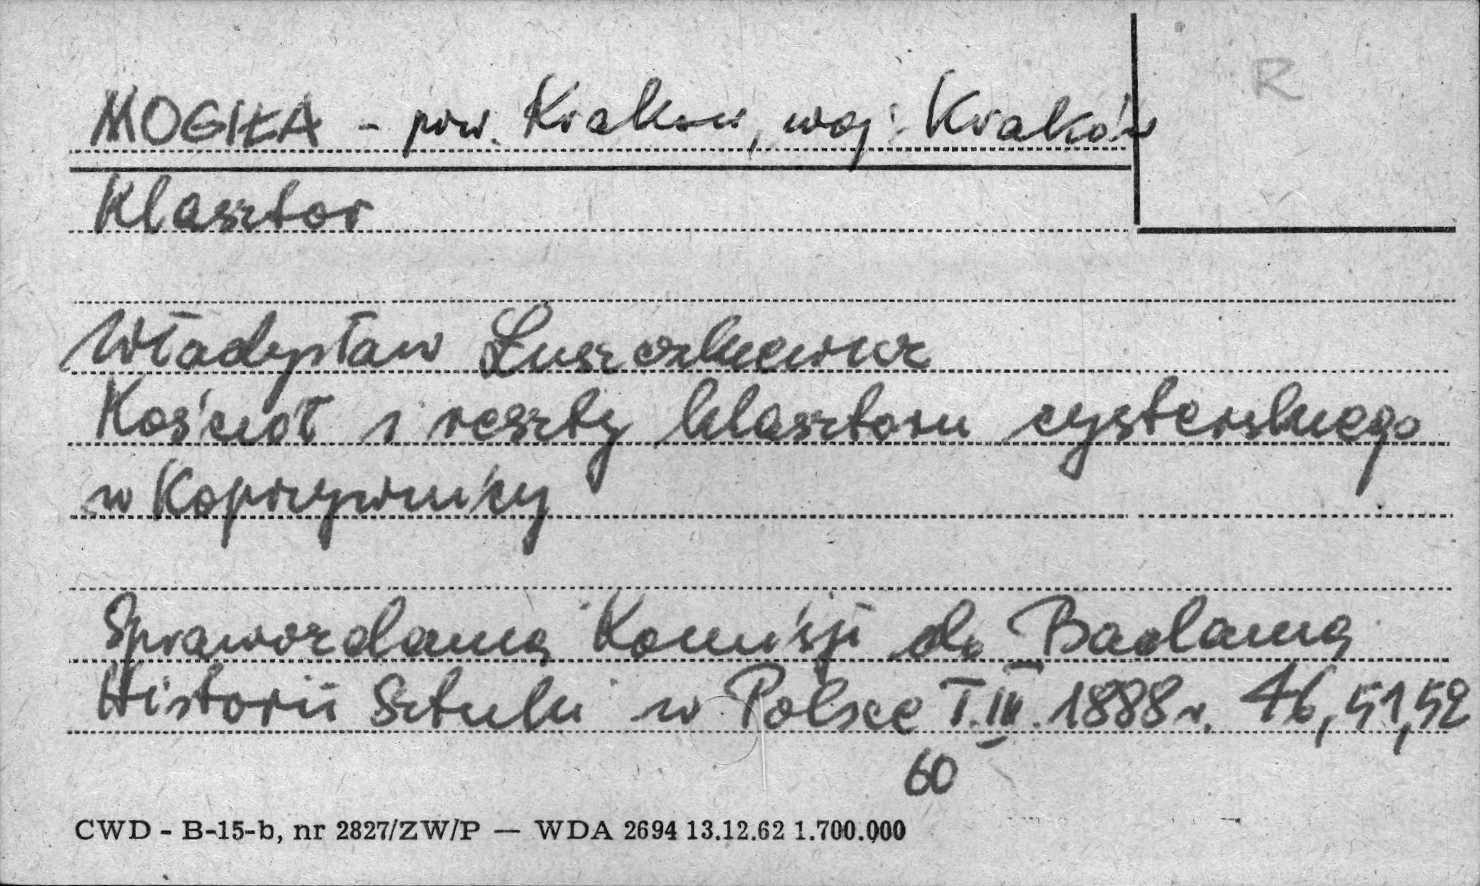 R
MOGIŁA - pow. Krakow, woj. Kraków
Klasztor
Władysław Łuszczkiewicz
Kościół i reszty klasztoru cysterskiego
w Koprzywnicy
Sprawozdania Komisji do Badania
Historii Sztuki w Polsce T. III. 1888 r. 46, 51, 52
60
CWD - B-15-b, nr 2827/ZW/P — WDA 2694 13.12.62 1.700.000